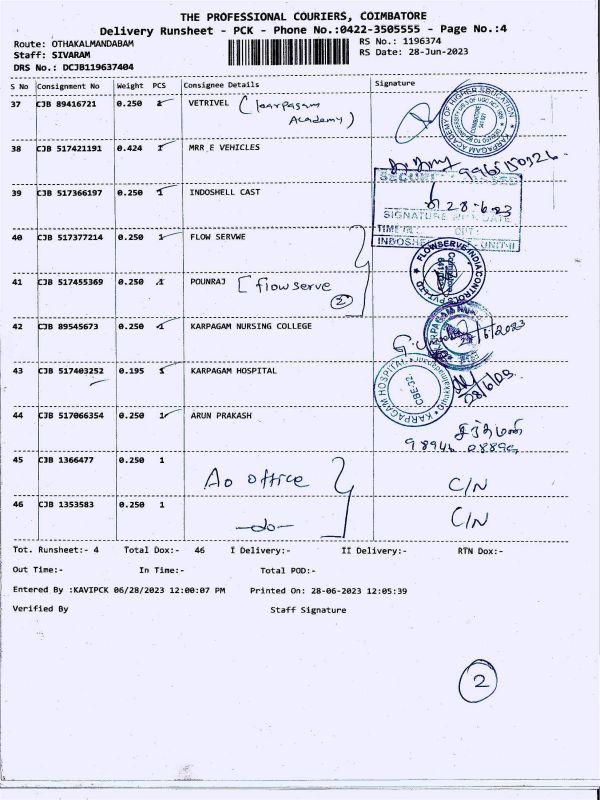 THE PROFESSIONAL COURIERS, COIMBATORE
Delivery Runsheet - PCK - Phone No.:0422-3505555 - Page No.:4
Route: OTHAKALMANDABAM RS No.: 1196374
Staff: SIVARAM RS Date: 28-Jun-2023
DRS No.: DCJB119637404
S No Consignment No Weight PCS Consignee Details Signature
37 CJB 89416721 0.250 VETRIVEL (karpagam Academy)
KARPAGAM ACADEMY OF HIGHER EDUCATION
38 CJB 517421191 0.424 1 MRR E VEHICLES
39 CJB 517366197 0.250 1 INDOSHELL CAST
28-6-23
SIGNATURE DATE
TIME IN
INDOSHE UNIT-II
40 CJB 517377214 0.250 1 FLOW SERVWE
FLOWSERVE INDIA CONTROLS PVT LTD
41 CJB 517455369 0.250 1 POUNRAJ [flowserve
2
42 CJB 89545673 0.250 1 KARPAGAM NURSING COLLEGE
43 CJB 517403252 0.195 1 KARPAGAM HOSPITAL
KARPAGAM HOSPITAL
CBE-32.
44 CJB 517066354 0.250 1 ARUN PRAKASH
45 CJB 1366477 0.250 1 Ao office C/N
46 CJB 1353583 0.250 1 -do- C/N
Tot. Runsheet:- 4 Total Dox:- 46 I Delivery:- II Delivery:- RTN Dox:-
Out Time:- In Time:- Total POD:-
Entered By :KAVIPCK 06/28/2023 12:00:07 PM Printed On: 28-06-2023 12:05:39
Verified By Staff Signature
2